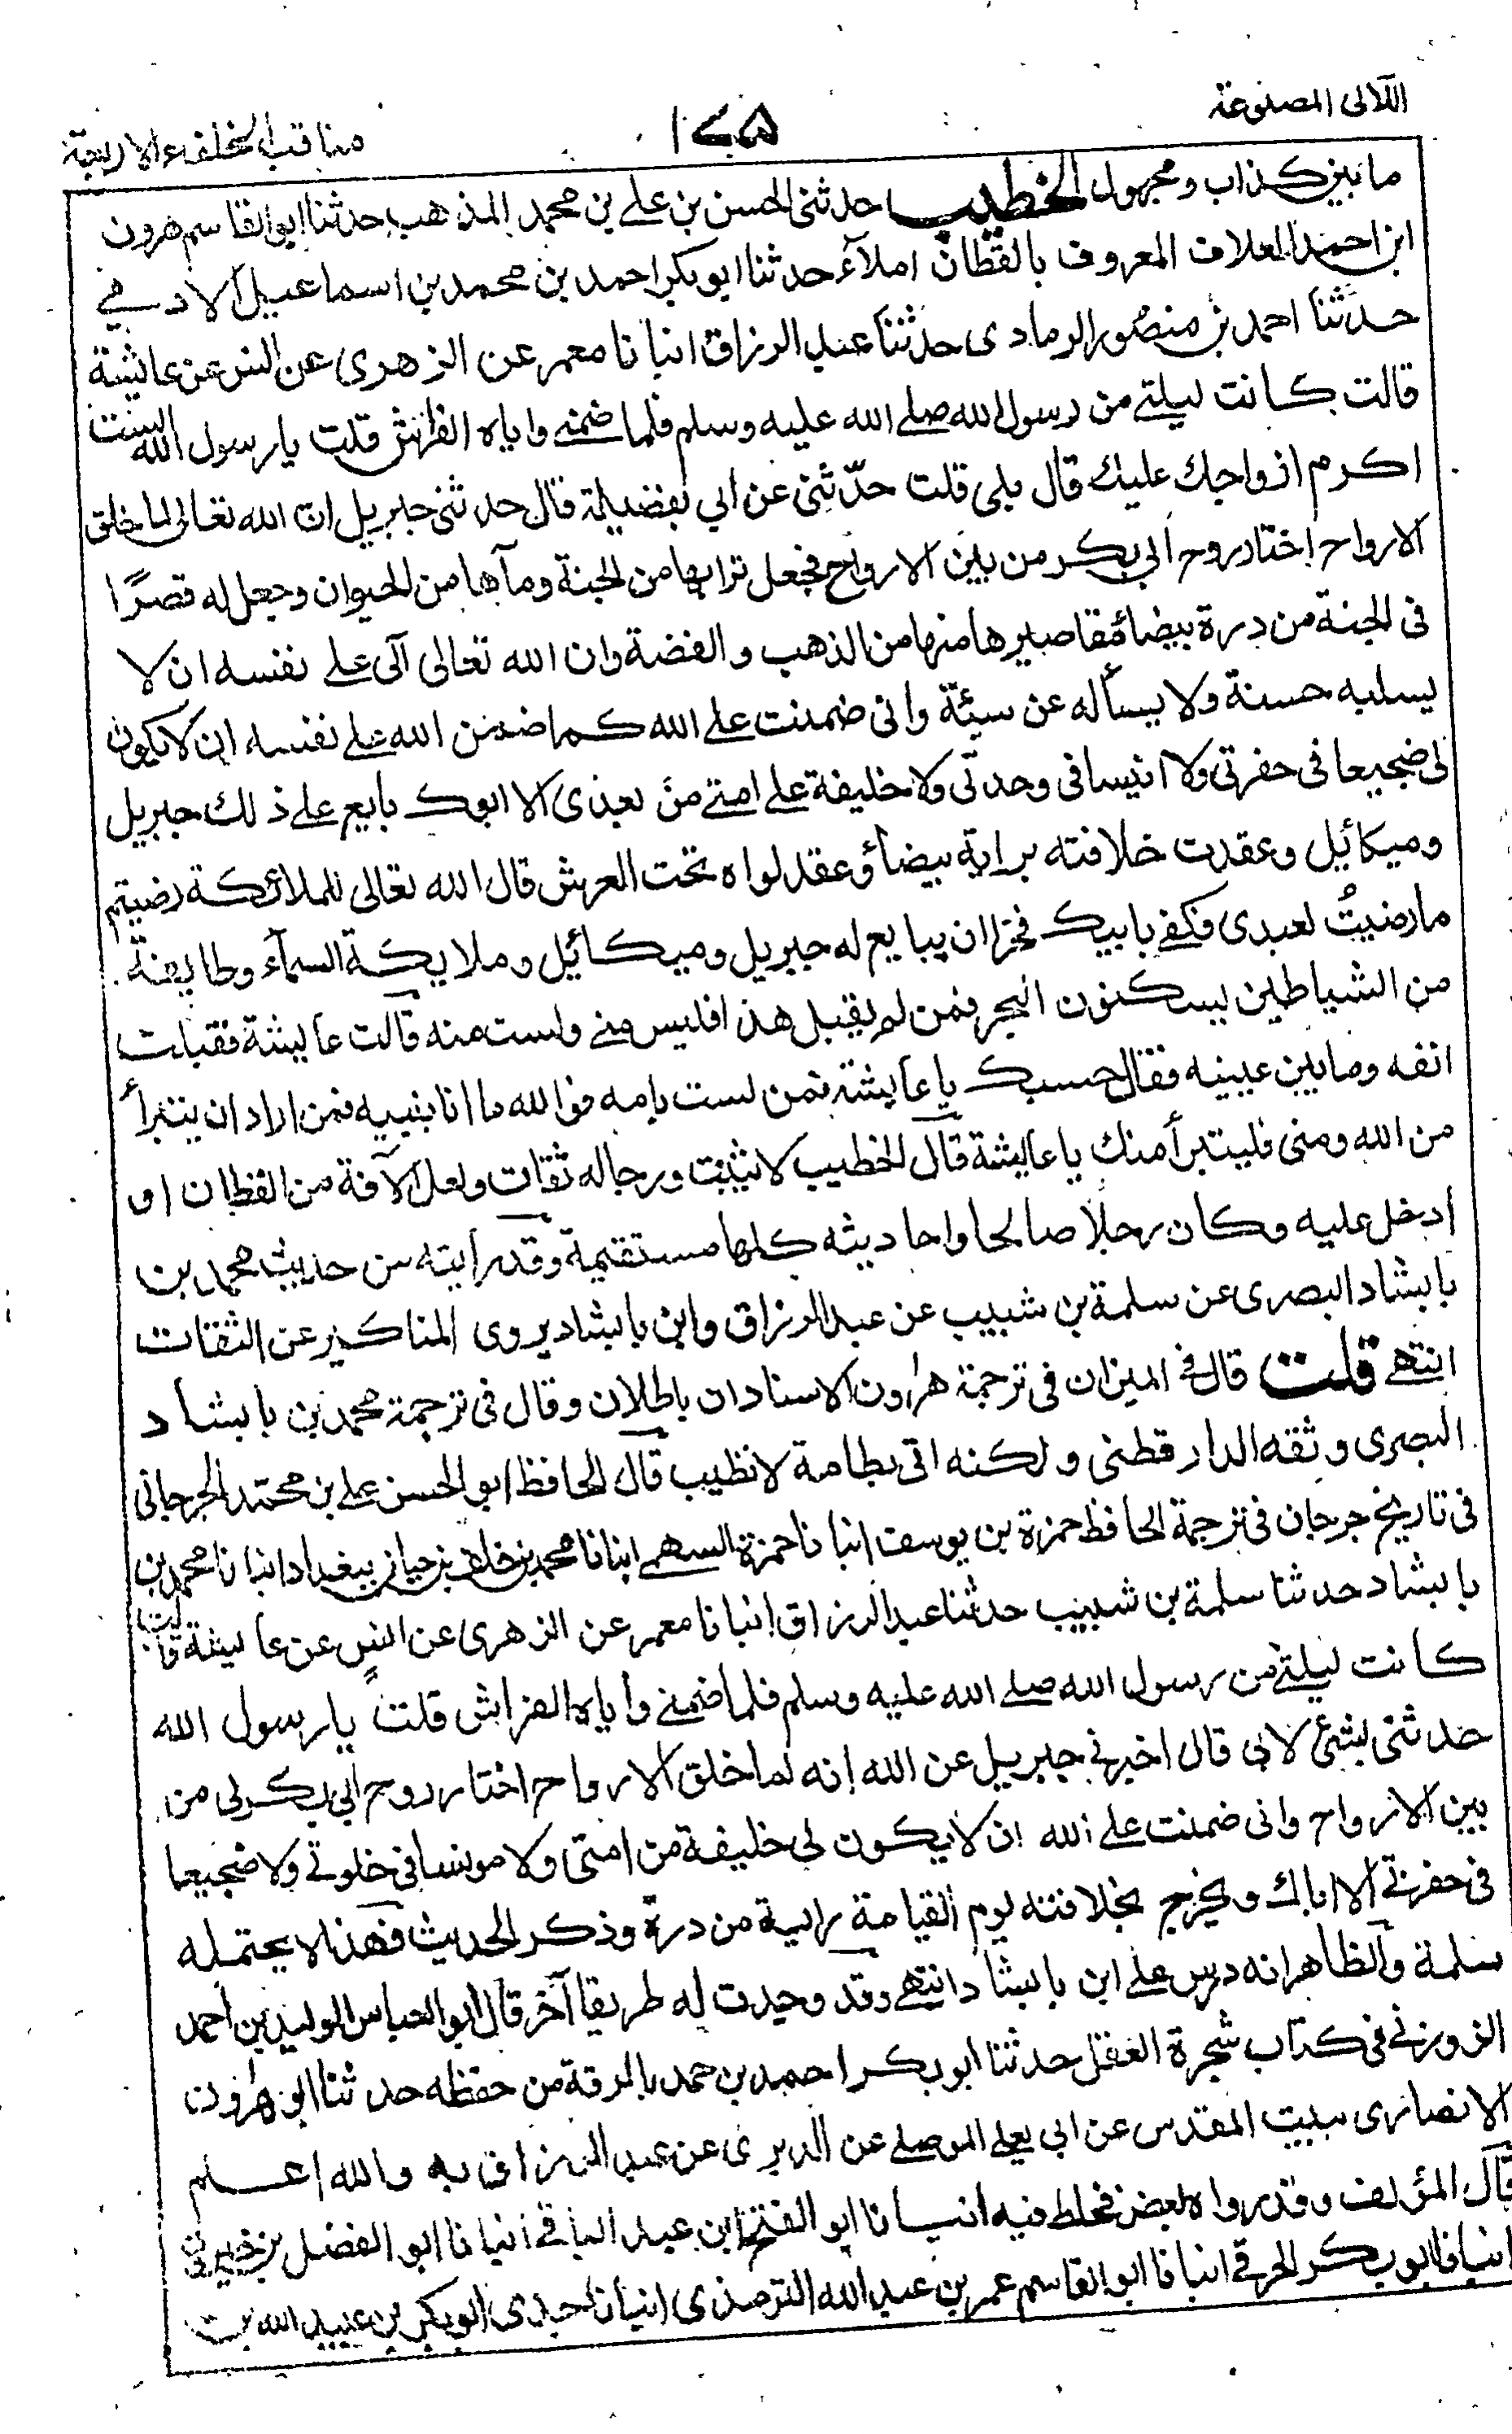 اللآلى المصنوعة
١٧٥
مناقب الخلفاء الاربعة
ما بين كذاب ومجهول الخطيب حدثنى الحسن بن على بن محمد المذهب حدثنا ابو القاسم هرون
ابن احمد العلاف المعروف بالقطان املآء حدثنا ابو بكر احمد بن محمد بن اسماعيل الادمي
حدثنا احمد بن منصور الرمادى حدثنا عبد الرزاق انبانا معمر عن الزهرى عن انس عن عايشة
قالت كانت ليلتے من رسول الله صلے الله عليه وسلم فلما ضمنے واياه الفراش قلت يا رسول الله الست
اكرم ازواجك عليك قال بلى قلت حدّثنى عن ابي بفضيلة قال حدثنى جبريل ان الله تعالى لما خلق
الارواح اختار روح ابي بكر من بين الارواح فجعل ترابها من الجنة ومآءها من الحيوان وجعل له قصرًا
فى الجنة من درة بيضاء مقاصيرها منها من الذهب والفضة وان الله تعالى آلى على نفسه ان لا
يسلبه حسنة ولا يسأله عن سيئة وانى ضمنت على الله كما ضمن الله على نفسه ان لا يكون
لى ضجيعا فى حفرتى ولا انيسا فى وحدتى ولا خليفة على امتے من بعدى الا ابوك بايع على ذلك جبريل
وميكائيل وعقدت خلافته براية بيضاء وعقد لواه تحت العرش قال الله تعالى للملائكة رضيتم
ما رضيتُ لعبدى فكفے بابيك فخرا ان يبايع له جبريل وميكائيل وملايكة السمآء وطايفة
من الشياطين يسكنون البحر فمن لم يقبل هذا فليس منے ولست منه قالت عايشة فقبلت
انفه وما بين عينيه فقال حسبك يا عايشة فمن لست بامه فوالله ما انا بنبيه فمن اراد ان يتبرأ
من الله ومنى فليتبرأ منك يا عايشة قال الخطيب لا يثبت ورجاله ثقات ولعل الآفة من القطان او
أدخل عليه وكان رجلا صالحا واحاديثه كلها مستقيمة وقد رايته من حديث محمد بن
بابشاد البصرى عن سلمة بن شبيب عن عبد الرزاق وابن بابشاد يروى المناكير عن الثقات
انتهے قلت قال فے الميزان فى ترجمة هرون الاسنادان باطلان وقال فى ترجمة محمد بن بابشاد
البصرى وثقه الدارقطنى ولكنه اتى بطامة لا تطيب قال الحافظ ابو الحسن على بن محمد الجرجانى
فى تاريخ جرجان فى ترجمة الحافظ حمزة بن يوسف انبانا حمزة السهمے انبانا محمد بن خلف بن حيان ببغداد انبانا محمد بن
بابشاد حدثنا سلمة بن شبيب حدثنا عبد الرزاق انبانا معمر عن الزهرى عن انس عن عايشة قالت
كانت ليلتے من رسول الله صلے الله عليه وسلم فلما ضمنے واياه الفراش قلت يا رسول الله
حدثنى بشئ لابى قال اخبرنے جبريل عن الله انه لما خلق الارواح اختار روح ابى بكر لى من
بين الارواح وانى ضمنت على الله ان لا يكون لى خليفة من امتى ولا مونسا فى خلوتے ولا ضجيعا
فى حفرتے الا اباك ويخرج بخلافته يوم القيامة براية من درة وذكر الحديث فهذا لا يحتمله
سلمة والظاهر انه درس على ابن بابشاد انتهے وقد وجدت له طريقا آخر قال ابو العباس الوليد بن أحمد
الزوزنے فى كتاب شجرة العقل حدثنا ابو بكر احمد بن حمد بالرقة من حفظه حدثنا ابو هرون
الانصارى ببيت المقدس عن ابى يعلے الموصلے عن الدبرى عن عبد الرزاق به والله اعلم
قال المؤلف وقد رواه بعض فخلط فيه انبانا ابو الفتح ابن عبد الباقے انبانا ابو الفضل بن خيرون
انبانا ابو بكر الحرقے انبانا ابو القاسم عمر بن عبد الله الترمذى انبانا جدى ابو بكر بن عبيد الله بن